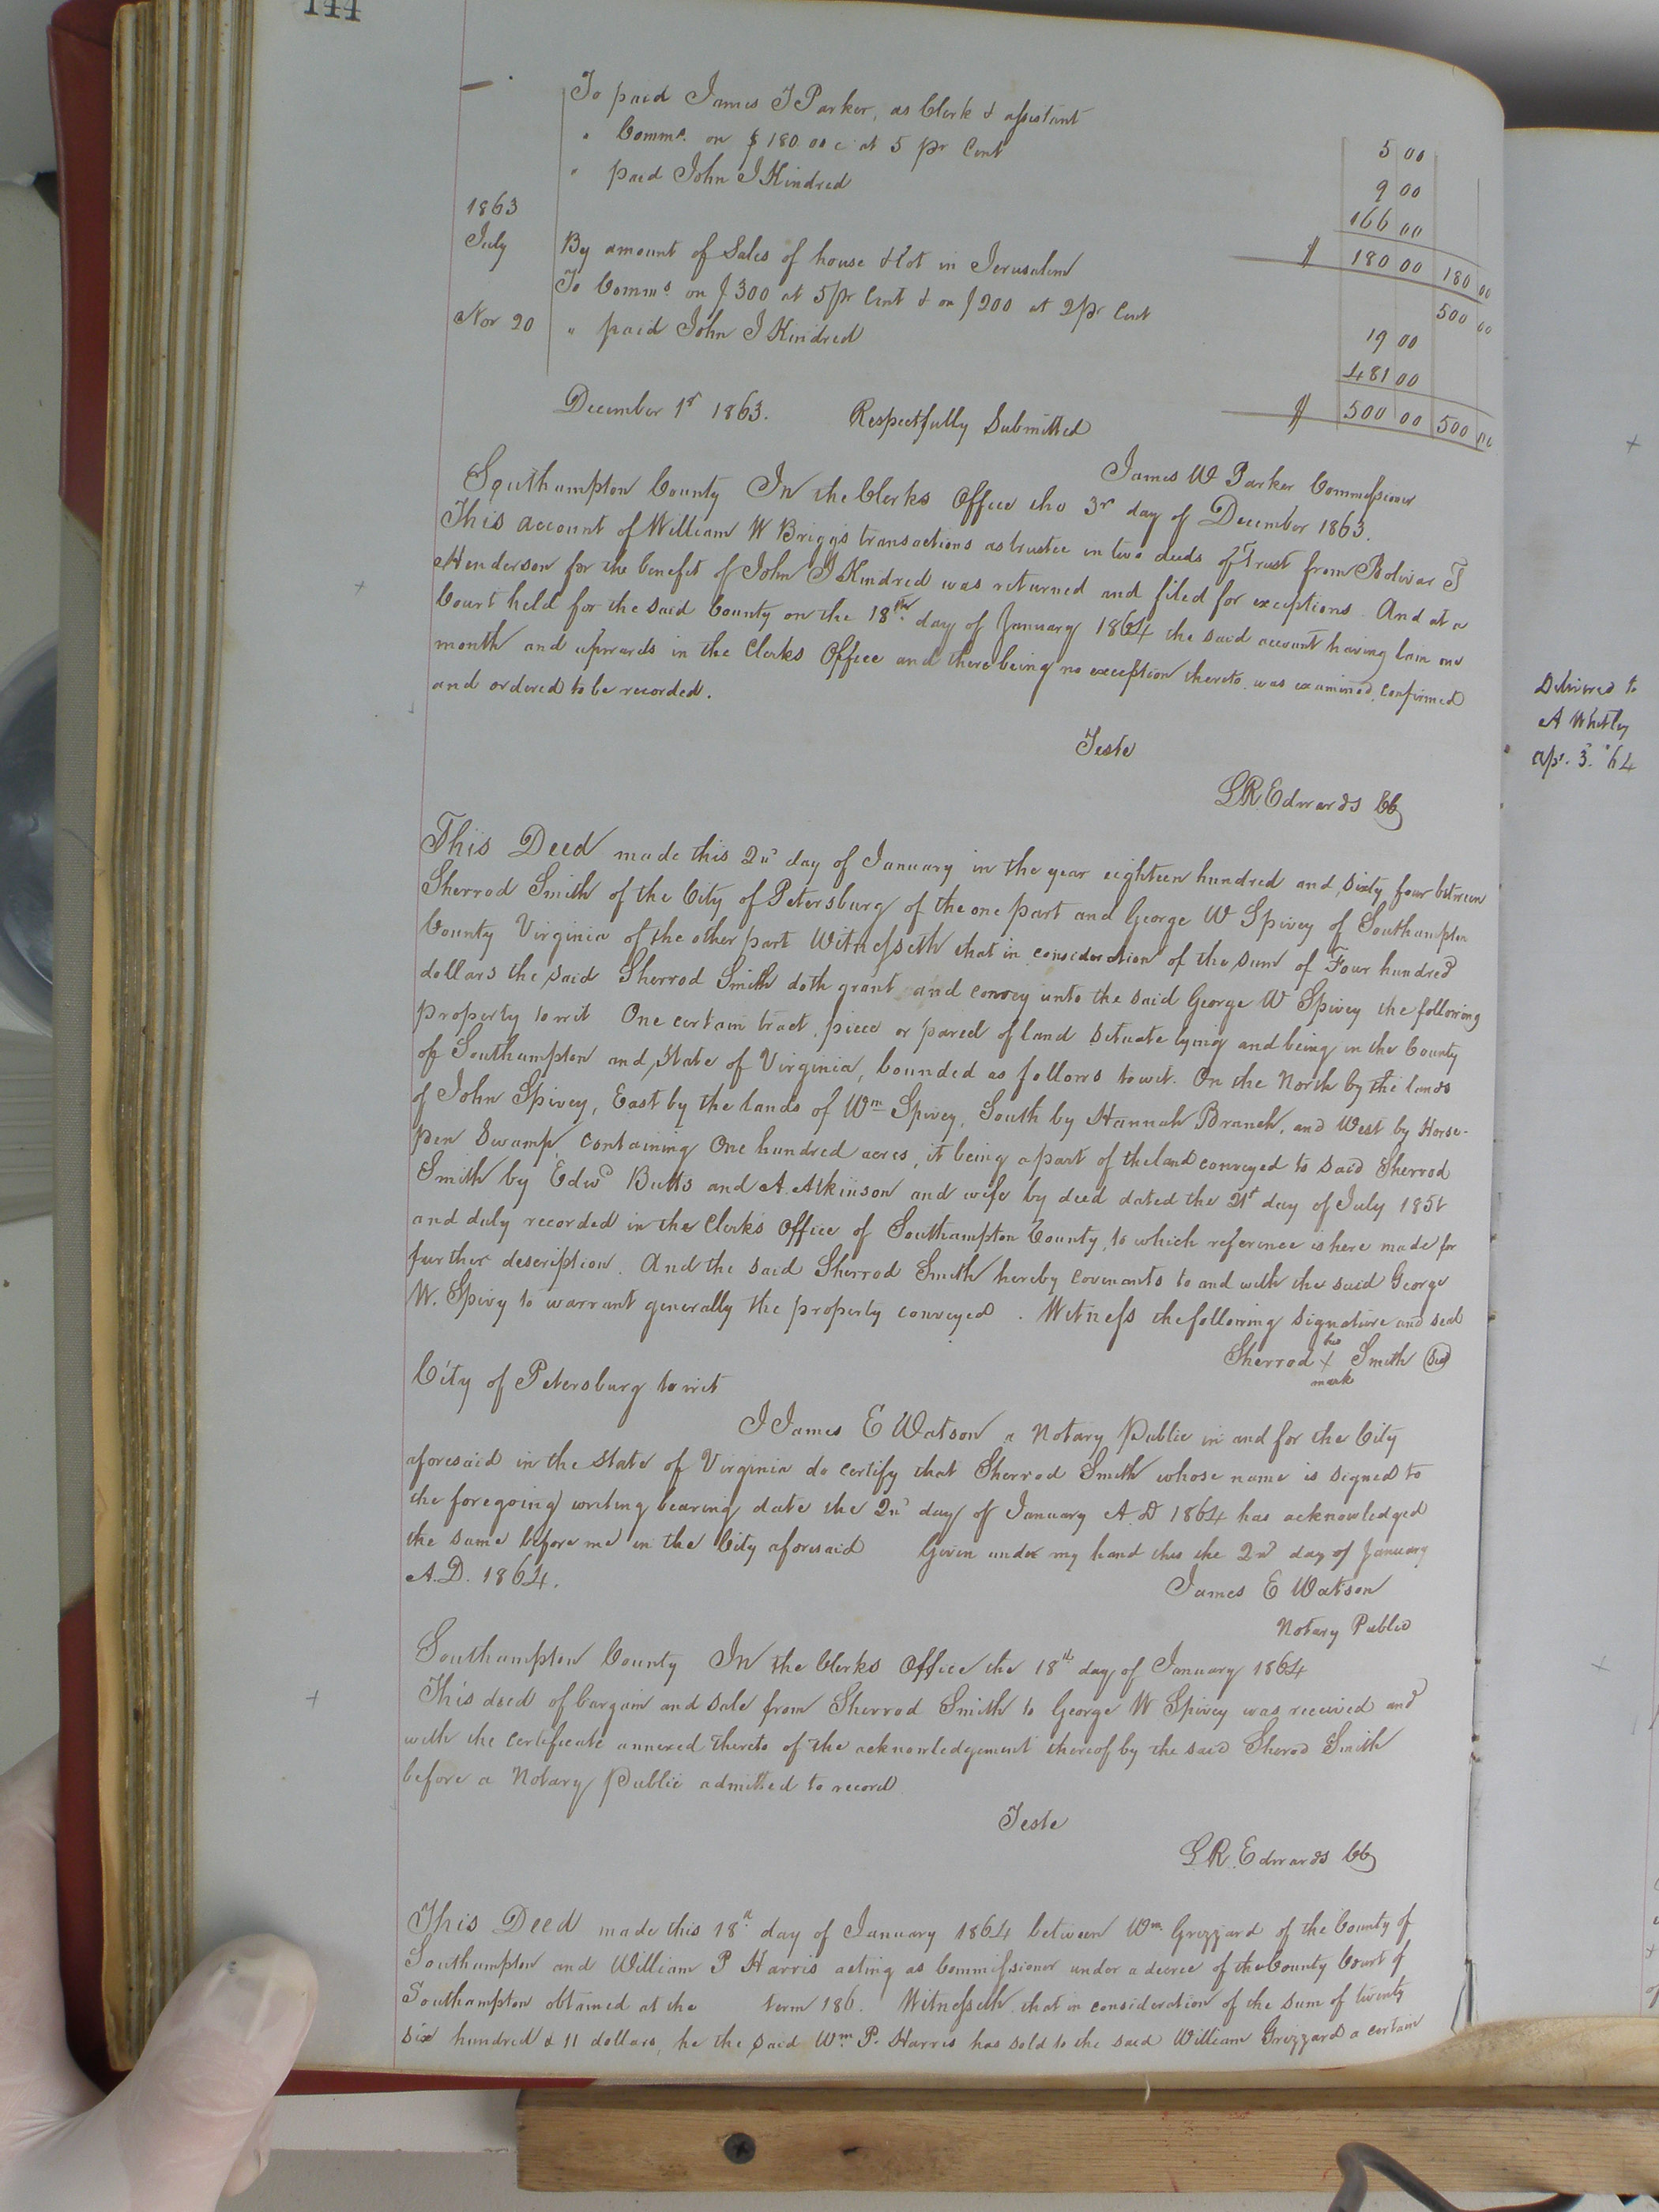 144
To paid James T Parker, as Clerk & assistant 5 00
" Comms. on $180.00 c at 5 pr Cent 9 00
" paid John J Kindred 166 00
$ 180 00 180 00
1863
July By amount of Sales of house & lot in Jerusalem 500 00
To Comms. on $300 at 5 pr Cent & on $200 at 2 pr Cent 19 00
Nov 20 " paid John J Kindred 481 00
$ 500 00 500 00
December 1st 1863. Respectfully Submitted
James W Parker Commissioner
Southampton County In the Clerks Office the 3rd day of December 1863.
This account of William W Briggs transactions as trustee in two deeds of Trust from Bolivar T
Henderson for the benefit of John J Kindred was returned and filed for exceptions. And at a
Court held for the said County on the 18th day of January 1864 the said account having lain one
month and upwards in the Clerks Office and there being no exception thereto was examined, confirmed
and ordered to be recorded.
Teste
L R Edwards CC
This Deed made this 2nd day of January in the year eighteen hundred and sixty four between
Sherrod Smith of the City of Petersburg of the one part and George W Spivey of Southampton
County Virginia of the other part Witnesseth that in consideration of the sum of Four hundred
dollars the said Sherrod Smith doth grant and convey unto the said George W Spivey the following
property to wit One certain tract, piece or parcel of land situate lying and being in the County
of Southampton and State of Virginia, bounded as follows to wit. On the North by the lands
of John Spivey, East by the lands of Wm Spivey, South by Hannah Branch, and West by Horse-
pen Swamp, containing One hundred acres, it being a part of the land conveyed to said Sherrod
Smith by Edwd Butts and A. Atkinson and wife by deed dated the 21st day of July 1851
and duly recorded in the Clerk's Office of Southampton County, to which reference is here made for
further description. And the said Sherrod Smith hereby covenants to and with the said George
W. Spivy to warrant generally the property conveyed. Witness the following signature and seal
his
Sherrod X Smith (Seal)
mark
City of Petersburg to wit
I James E Watson a Notary Public in and for the City
aforesaid in the State of Virginia do certify that Sherrod Smith whose name is signed to
the foregoing writing bearing date the 2nd day of January A D 1864 has acknowledged
the same before me in the City aforesaid Given under my hand this the 2nd day of January
A.D. 1864.
James E Watson
Notary Public
Southampton County In the Clerks Office the 18th day of January 1864
This deed of bargain and sale from Sherrod Smith to George W Spivey was received and
with the certificate annexed thereto of the acknowledgement thereof by the said Sherod Smith
before a Notary Public admitted to record
Teste
L R. Edwards CC
This Deed made this 18th day of January 1864 between Wm Grizzard of the County of
Southampton and William P Harris acting as Commissioner under a decree of the County Court of
Southampton obtained at the term 186. Witnesseth that in consideration of the sum of twenty
six hundred & 11 dollars, he the said Wm. P. Harris has sold to the said William Grizzard a certain
Delivered to
A Whitley
apl. 3. '64